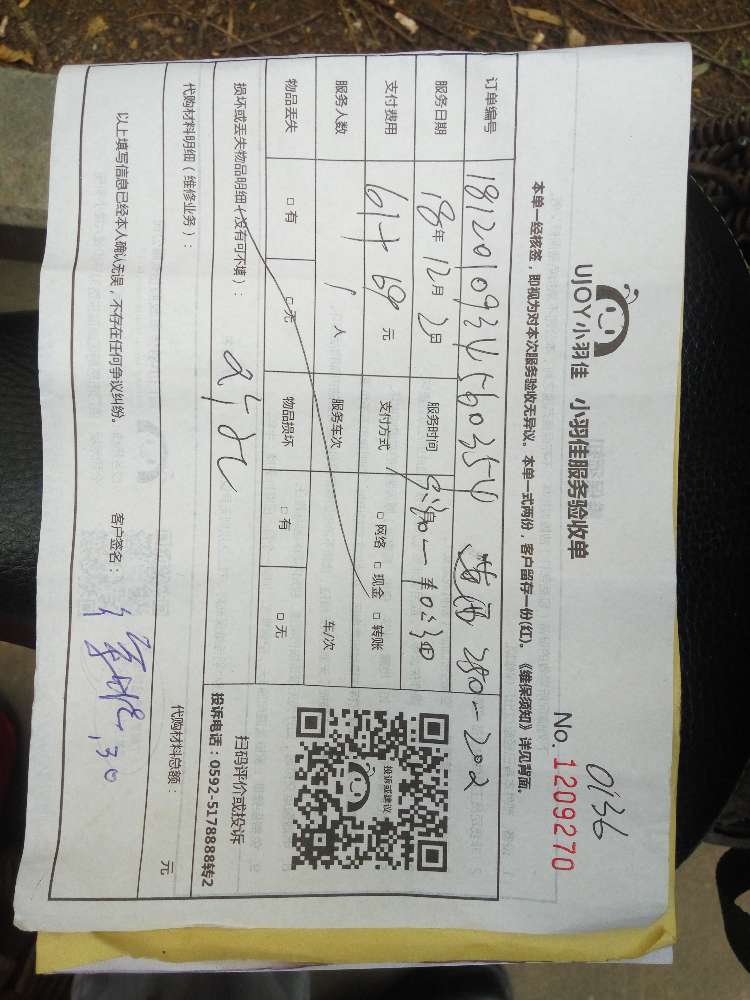 UJOY小羽佳 小羽佳服务验收单
0136
No. 1209270
本单一经核签，即视为对本次服务验收无异议。本单一式两份，客户留存一份(红)。《维保须知》详见背面。
订单编号 280-202
服务日期 18年 12月 2日 服务时间
支付费用 61+69 元 支付方式 □ 网络 □ 现金 □ 转账
服务人数 1 人 服务车次 车/次
物品丢失 □ 有 □ 无 物品损坏 □ 有 □ 无
投诉或建议
扫码评价或投诉
投诉电话：0592-5178888转2
损坏或丢失物品明细（没有可不填）：
代购材料明细（维修业务）： 代购材料总额： 元
以上填写信息已经本人确认无误，不存在任何争议纠纷。 客户签名：